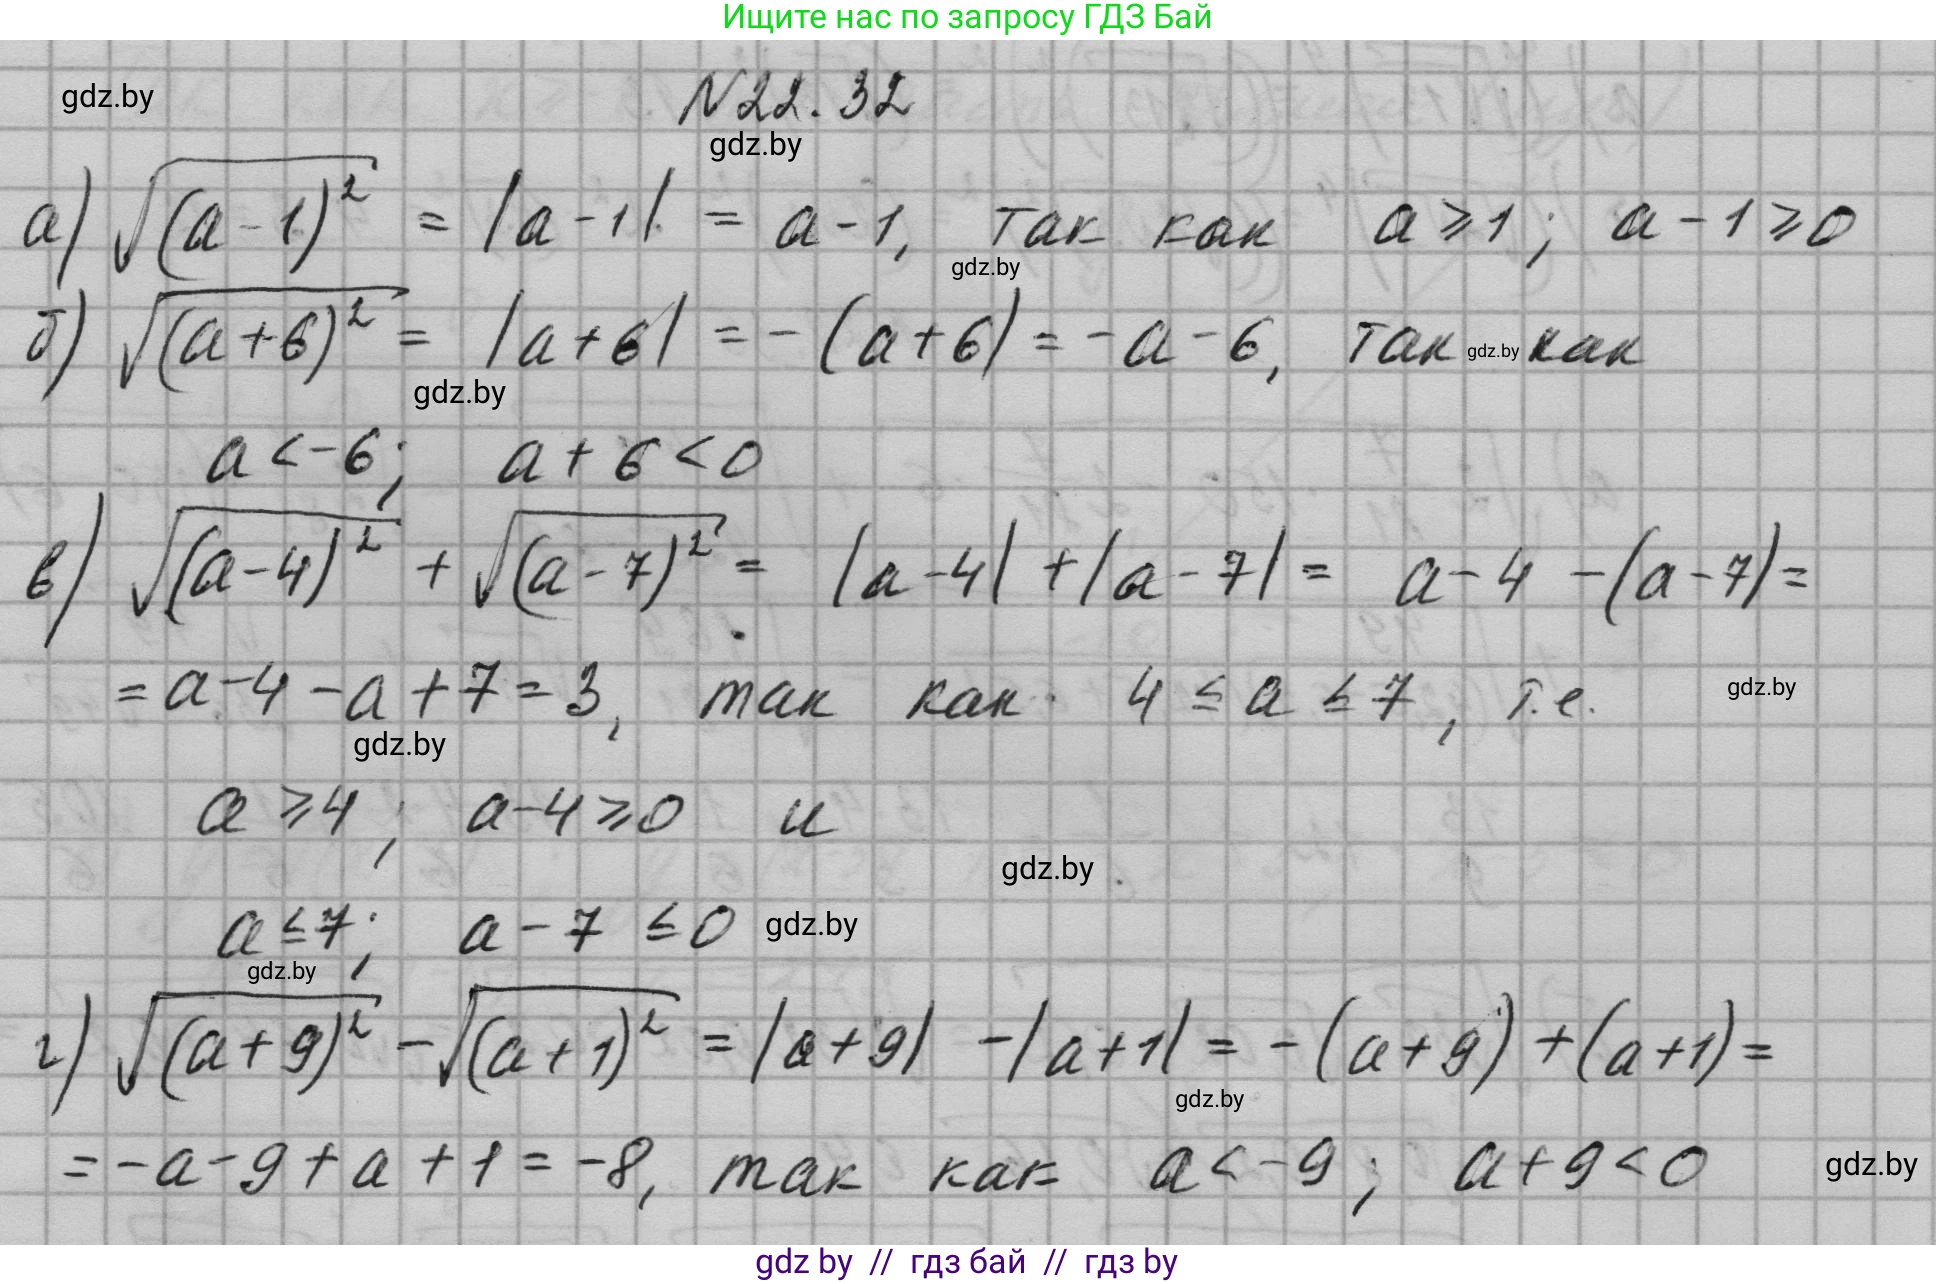 Ищите нас по запросу ГДЗ Бай
gdz.by
N22.32
gdz.by
а) √(a-1)² = |a-1| = a-1, так как a ⩾ 1; a-1 ⩾ 0
gdz.by
б) √(a+6)² = |a+6| = -(a+6) = -a-6, так gdz.by как
gdz.by
a < -6; a+6 < 0
в) √(a-4)² + √(a-7)² = |a-4| + |a-7| = a-4 -(a-7) =
= a-4-a+7 = 3, так как 4 ≤ a ≤ 7, т.е.
gdz.by
gdz.by
a ⩾ 4; a-4 ⩾ 0 и
gdz.by
a ≤ 7; a-7 ≤ 0 gdz.by
gdz.by
г) √(a+9)² - √(a+1)² = |a+9| - |a+1| = -(a+9) + (a+1) =
gdz.by
= -a-9+a+1 = -8, так как a < -9; a+9 < 0 gdz.by
gdz by // гдз бай // гдз by